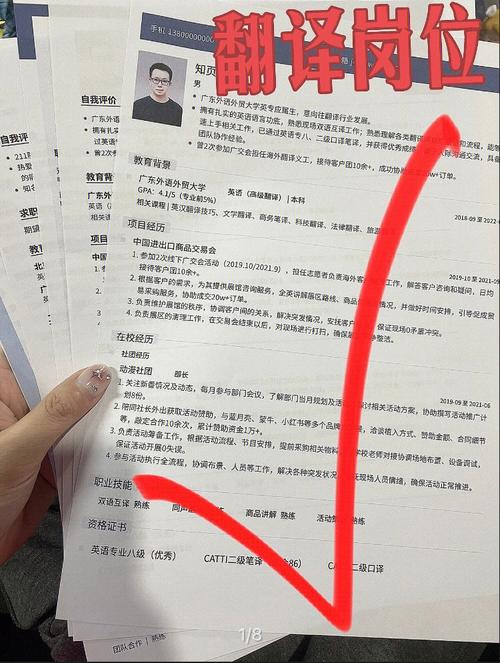 翻译岗位
手机 13800000000
知页
男
广东外语外贸大学英专应届生,意向往翻译行业发展。
拥有扎实的英语语言功底,熟悉现场双语互译工作;熟悉理解各类翻译
速上手相关工作,已通过英语专八、二级口译笔译,并获得优秀成绩
团队协作经验。
曾2次参加广交会担任海外翻译义工,接待客户团10余+,成功协
教育背景
广东外语外贸大学 英语(高级翻译)| 本科
2018-09 至 2022
GPA:4.1/5(专业前5%)
相关课程 | 英汉翻译技巧、文学翻译、商务笔译、科技翻译、法律翻译、旅游
项目经历
中国进出口商品交易会
2019-10 至 2021-09
1. 参加2次线下广交会活动(2019.10/2021.9),担任志愿者负责海外客 工作,解答客户咨询和疑问,日均
接待客户团10余+。
2. 根据客户的需求,为其提供展馆咨询服务,全英讲解展区路线、商品 情况,并做好时间安排,引导促成贸
易采购服务,协助成交20w+订单。
3. 负责维护展馆的秩序,协调客户间的关系,解决突发情况,安抚客户 保证现场0矛盾冲突。
4. 负责展区的清理工作,在交易会结束以后,对现场进行打扫,确保 净整洁。
在校经历
社团经历
动漫社团 部长
2019-09 至 2021-06
1. 关注新番情况及动态,每月参与部门会议,了解部门当月规划及 讨相关活动方案,协助撰写活动推广计
划8份。
2. 陪同社长外出获取活动赞助,与蓝月亮、蒙牛、小红书等多个品牌 展,洽谈植入方式、赞助金额、合同细节
等,敲定合作10余次,累计赞助资金1万+。
3. 负责活动筹备工作,根据活动流程、节目安排,提前采购相关物料 学校老师对接协调场地布置、设备调试,
保证活动开展0失误。
4. 参与活动执行全流程,协调布景、人员等工作,解决各种突发状况 现场人员情绪,确保活动正常推进。
职业技能
双语互译 熟练 同声 商品讲解 熟练 活动 熟练
资格证书
英语专业八级(优秀) CATTI二级笔译 86) CA 二级口译
1/8
团队合作 | 熟练
自我评价
教育背
项目
自我评
211
求职
期望
教育